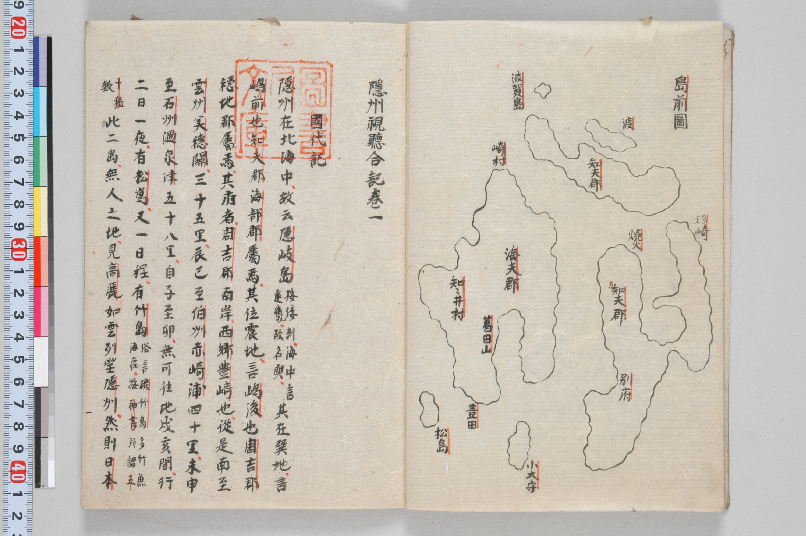 島前圖
波
知夫郡
波賀島
崎村
珍崎
燒火
知夫郡
別府
海夫郡
知々井村
葛田山
豊田
松島
小大守
隱州視聽合記卷一
國代記
隱州在北海中故云隱岐島
其在巽地言
嶋前也知夫郡海部郡屬焉其位震地言嶋後也周吉郡
穩地郡屬焉其府者周吉郡南岸西鄉豊崎也從是南至
雲州美穗關三十五里辰巳至伯州赤崎浦四十里未申
至石州溫泉津五十八里自子至卯無可往地戍亥間行
二日一夜有松島又一日程有竹島俗言磯竹島多竹魚
海鹿按神書所謂五
十猛
歟
此二島無人之地見高麗如雲州望隱州然則日本